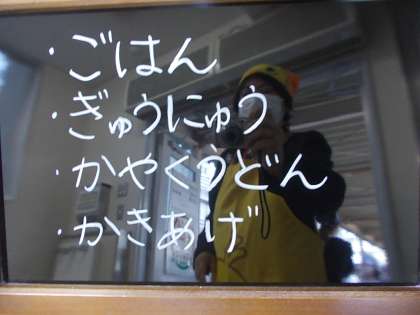 ・ごはん
・ぎゅうにゅう
・かやくうどん
・かきあげ